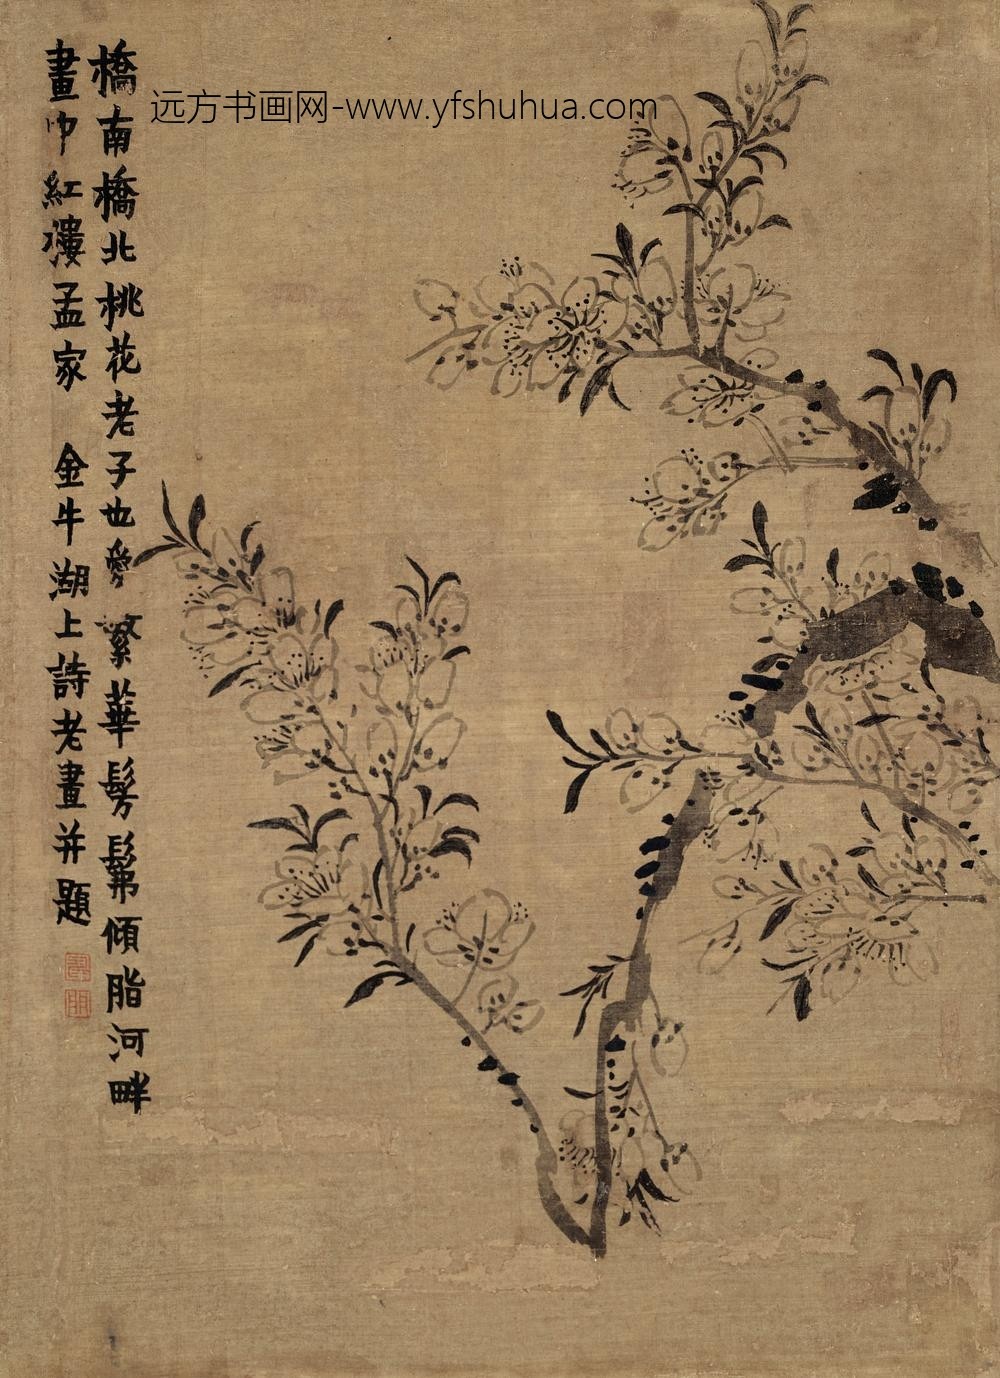 远方书画网-www.yfshuhua.com
橋南橋北桃花老子也愛繁華髣髴傾脂河畔
畫中紅樓孟家 金牛湖上詩老畫并題